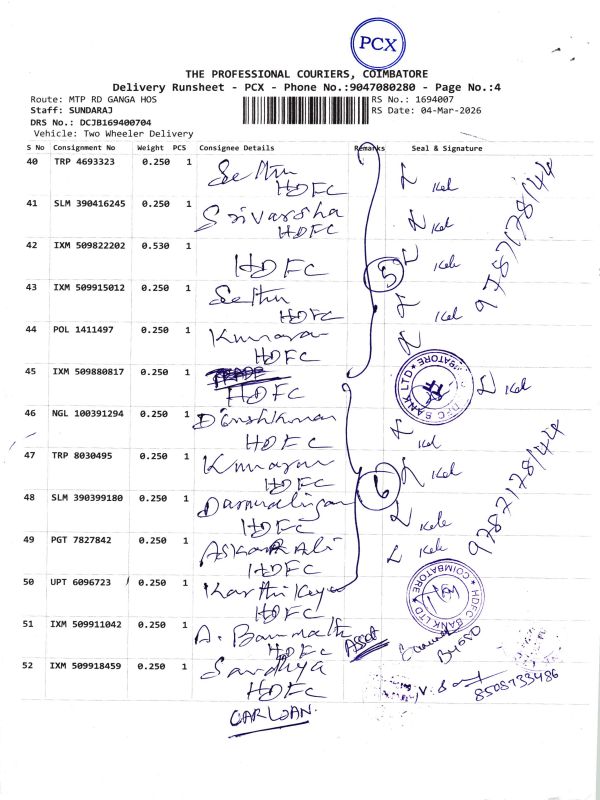 PCX
THE PROFESSIONAL COURIERS, COIMBATORE
Delivery Runsheet - PCX - Phone No.:9047080280 - Page No.:4
Route: MTP RD GANGA HOS
RS No.: 1694007
Staff: SUNDARAJ
RS Date: 04-Mar-2026
DRS No.: DCJB169400704
Vehicle: Two Wheeler Delivery
S No Consignment No Weight PCS Consignee Details Remarks Seal & Signature
40 TRP 4693323 0.250 1 Sethu
HDFC
41 SLM 390416245 0.250 1 Srivarsha
HDFC
42 IXM 509822202 0.530 1
HDFC
43 IXM 509915012 0.250 1 Sethu
HDFC
5
9787178144
44 POL 1411497 0.250 1 Kumaran
HDFC
45 IXM 509880817 0.250 1
HDFC
HDFC BANK LTD COIMBATORE
46 NGL 100391294 0.250 1
HDFC
47 TRP 8030495 0.250 1 Kumaran
HDFC
6
9787178144
48 SLM 390399180 0.250 1
HDFC
49 PGT 7827842 0.250 1 Askar Ali
HDFC
50 UPT 6096723 0.250 1 Karthikeya
HDFC
HDFC BANK LTD COIMBATORE
51 IXM 509911042 0.250 1 A.
HDFC
Asset
52 IXM 509918459 0.250 1 Sandhya
HDFC
CAR LOAN.
8508733486